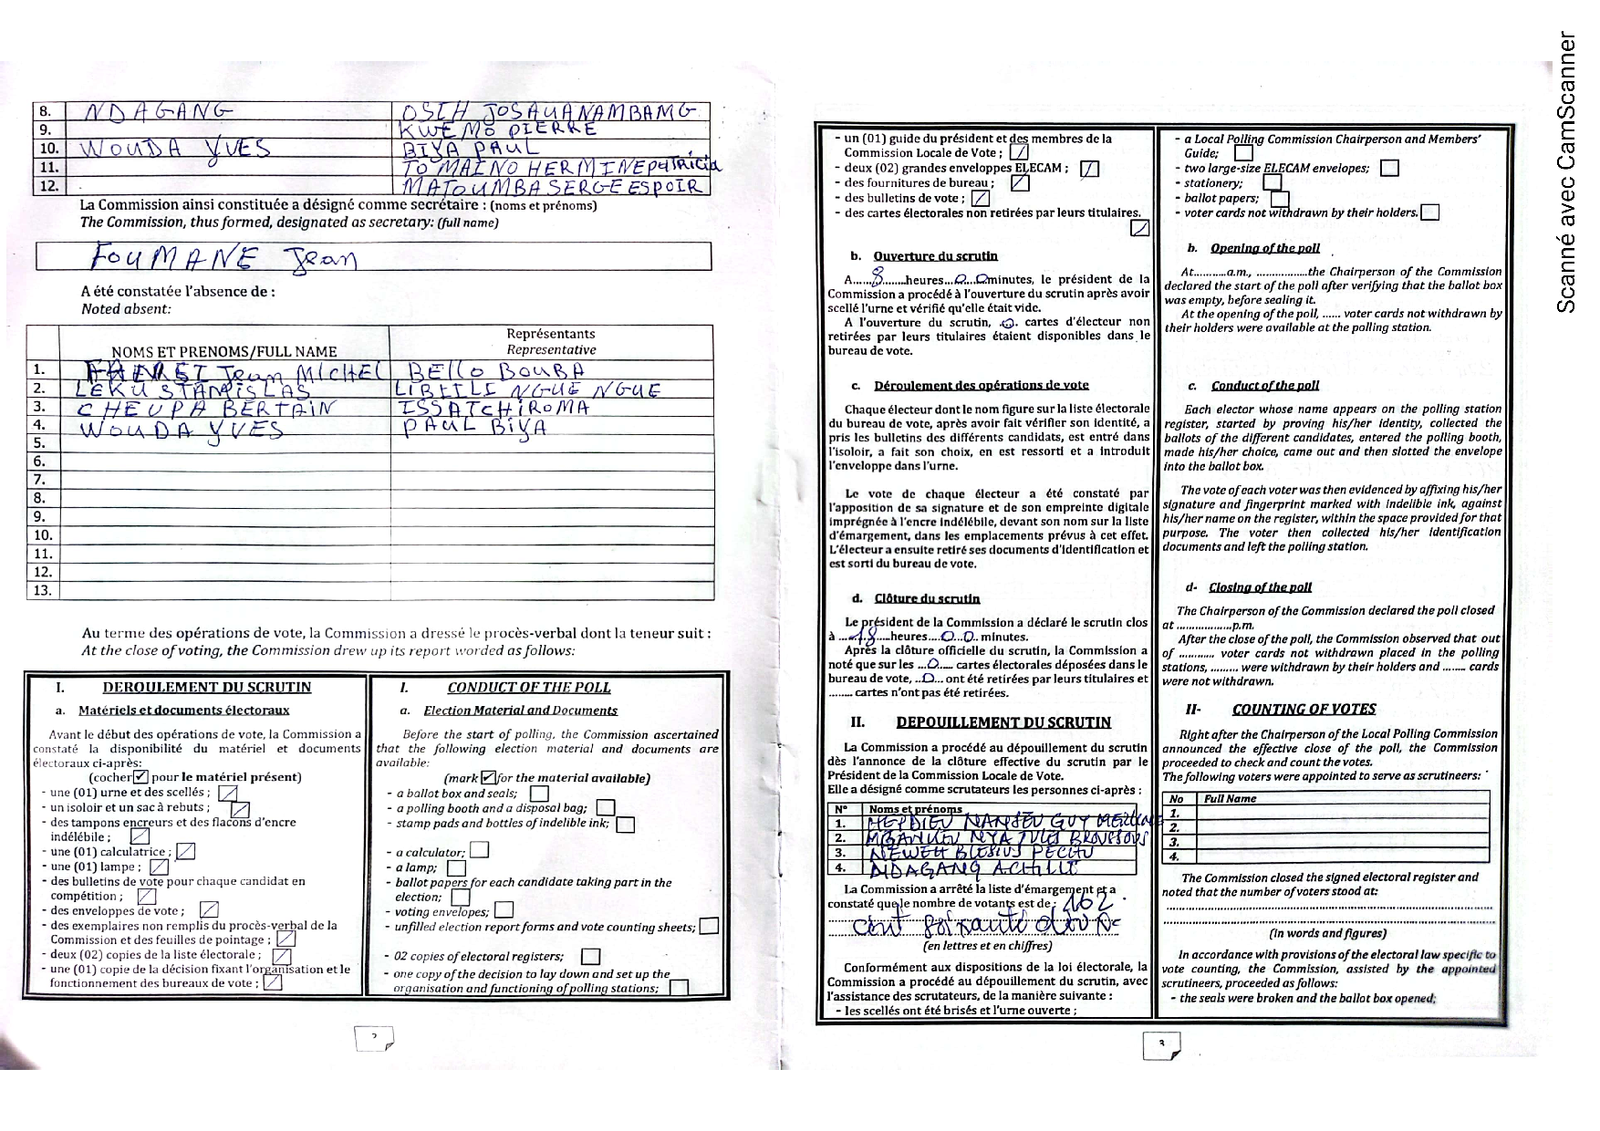 8. NDAGANG OSIH JOSAUANAMBAMG
9. KWEMO PIERRE
10. WOUDA YVES BIYA PAUL
11. TOMAINO HERMINE patricia
12. MATOUMBA SERGE ESPOIR
La Commission ainsi constituée a désigné comme secrétaire : (noms et prénoms)
The Commission, thus formed, designated as secretary: (full name)
FOUMANE Jean
A été constatée l'absence de :
Noted absent:
NOMS ET PRENOMS/FULL NAME
Représentants
Representative
1. Jean MICHEL BEllO BOUBA
2. LEKU STANISLAS LIBILI NGUE NGUE
3. CHEUPA BERTAIN ISSATCHIROMA
4. WOUDA YVES PAUL BIYA
5.
6.
7.
8.
9.
10.
11.
12.
13.
Au terme des opérations de vote, la Commission a dressé le procès-verbal dont la teneur suit :
At the close of voting, the Commission drew up its report worded as follows:
I. DEROULEMENT DU SCRUTIN
a. Matériels et documents électoraux
Avant le début des opérations de vote, la Commission a
constaté la disponibilité du matériel et documents
électoraux ci-après:
(cocher ✓ pour le matériel présent)
- une (01) urne et des scellés ;
- un isoloir et un sac à rebuts ;
- des tampons encreurs et des flacons d'encre
indélébile ;
- une (01) calculatrice ;
- une (01) lampe ;
- des bulletins de vote pour chaque candidat en
compétition ;
- des enveloppes de vote ;
- des exemplaires non remplis du procès-verbal de la
Commission et des feuilles de pointage ;
- deux (02) copies de la liste électorale ;
- une (01) copie de la décision fixant l'organisation et le
fonctionnement des bureaux de vote ;
I. CONDUCT OF THE POLL
a. Election Material and Documents
Before the start of polling, the Commission ascertained
that the following election material and documents are
available:
(mark ✓ for the material available)
- a ballot box and seals;
- a polling booth and a disposal bag;
- stamp pads and bottles of indelible ink;
- a calculator;
- a lamp;
- ballot papers for each candidate taking part in the
election;
- voting envelopes;
- unfilled election report forms and vote counting sheets;
- 02 copies of electoral registers;
- one copy of the decision to lay down and set up the
organisation and functioning of polling stations;
2
- un (01) guide du président et des membres de la
Commission Locale de Vote ;
- deux (02) grandes enveloppes ELECAM ;
- des fournitures de bureau ;
- des bulletins de vote ;
- des cartes électorales non retirées par leurs titulaires.
b. Ouverture du scrutin
A.....8......heures...00minutes, le président de la
Commission a procédé à l'ouverture du scrutin après avoir
scellé l'urne et vérifié qu'elle était vide.
A l'ouverture du scrutin, .0. cartes d'électeur non
retirées par leurs titulaires étaient disponibles dans le
bureau de vote.
c. Déroulement des opérations de vote
Chaque électeur dont le nom figure sur la liste électorale
du bureau de vote, après avoir fait vérifier son identité, a
pris les bulletins des différents candidats, est entré dans
l'isoloir, a fait son choix, en est ressorti et a introduit
l'enveloppe dans l'urne.
Le vote de chaque électeur a été constaté par
l'apposition de sa signature et de son empreinte digitale
imprégnée à l'encre indélébile, devant son nom sur la liste
d'émargement, dans les emplacements prévus à cet effet.
L'électeur a ensuite retiré ses documents d'identification et
est sorti du bureau de vote.
d. Clôture du scrutin
Le président de la Commission a déclaré le scrutin clos
à ....18....heures...00.. minutes.
Après la clôture officielle du scrutin, la Commission a
noté que sur les ...0.... cartes électorales déposées dans le
bureau de vote, ..0... ont été retirées par leurs titulaires et
........ cartes n'ont pas été retirées.
II. DEPOUILLEMENT DU SCRUTIN
La Commission a procédé au dépouillement du scrutin
dès l'annonce de la clôture effective du scrutin par le
Président de la Commission Locale de Vote.
Elle a désigné comme scrutateurs les personnes ci-après :
N° Noms et prénoms
1. GUY
2. NYA JULES
3. NEWEH BLESIUS PECHU
4. NDAGANG ACHILLE
La Commission a arrêté la liste d'émargement et a
constaté que le nombre de votants est de : 162
cent soixante deux
(en lettres et en chiffres)
Conformément aux dispositions de la loi électorale, la
Commission a procédé au dépouillement du scrutin, avec
l'assistance des scrutateurs, de la manière suivante :
- les scellés ont été brisés et l'urne ouverte ;
- a Local Polling Commission Chairperson and Members'
Guide;
- two large-size ELECAM envelopes;
- stationery;
- ballot papers;
- voter cards not withdrawn by their holders.
b. Opening of the poll
At...........a.m., .................the Chairperson of the Commission
declared the start of the poll after verifying that the ballot box
was empty, before sealing it.
At the opening of the poll, ...... voter cards not withdrawn by
their holders were available at the polling station.
c. Conduct of the poll
Each elector whose name appears on the polling station
register, started by proving his/her identity, collected the
ballots of the different candidates, entered the polling booth,
made his/her choice, came out and then slotted the envelope
into the ballot box.
The vote of each voter was then evidenced by affixing his/her
signature and fingerprint marked with indelible ink, against
his/her name on the register, within the space provided for that
purpose. The voter then collected his/her identification
documents and left the polling station.
d- Closing of the poll
The Chairperson of the Commission declared the poll closed
at ..................p.m.
After the close of the poll, the Commission observed that out
of ............ voter cards not withdrawn placed in the polling
stations, ......... were withdrawn by their holders and ........ cards
were not withdrawn.
II- COUNTING OF VOTES
Right after the Chairperson of the Local Polling Commission
announced the effective close of the poll, the Commission
proceeded to check and count the votes.
The following voters were appointed to serve as scrutineers:
No Full Name
1.
2.
3.
4.
The Commission closed the signed electoral register and
noted that the number of voters stood at:
(In words and figures)
In accordance with provisions of the electoral law specific to
vote counting, the Commission, assisted by the appointed
scrutineers, proceeded as follows:
- the seals were broken and the ballot box opened;
3
Scanné avec CamScanner